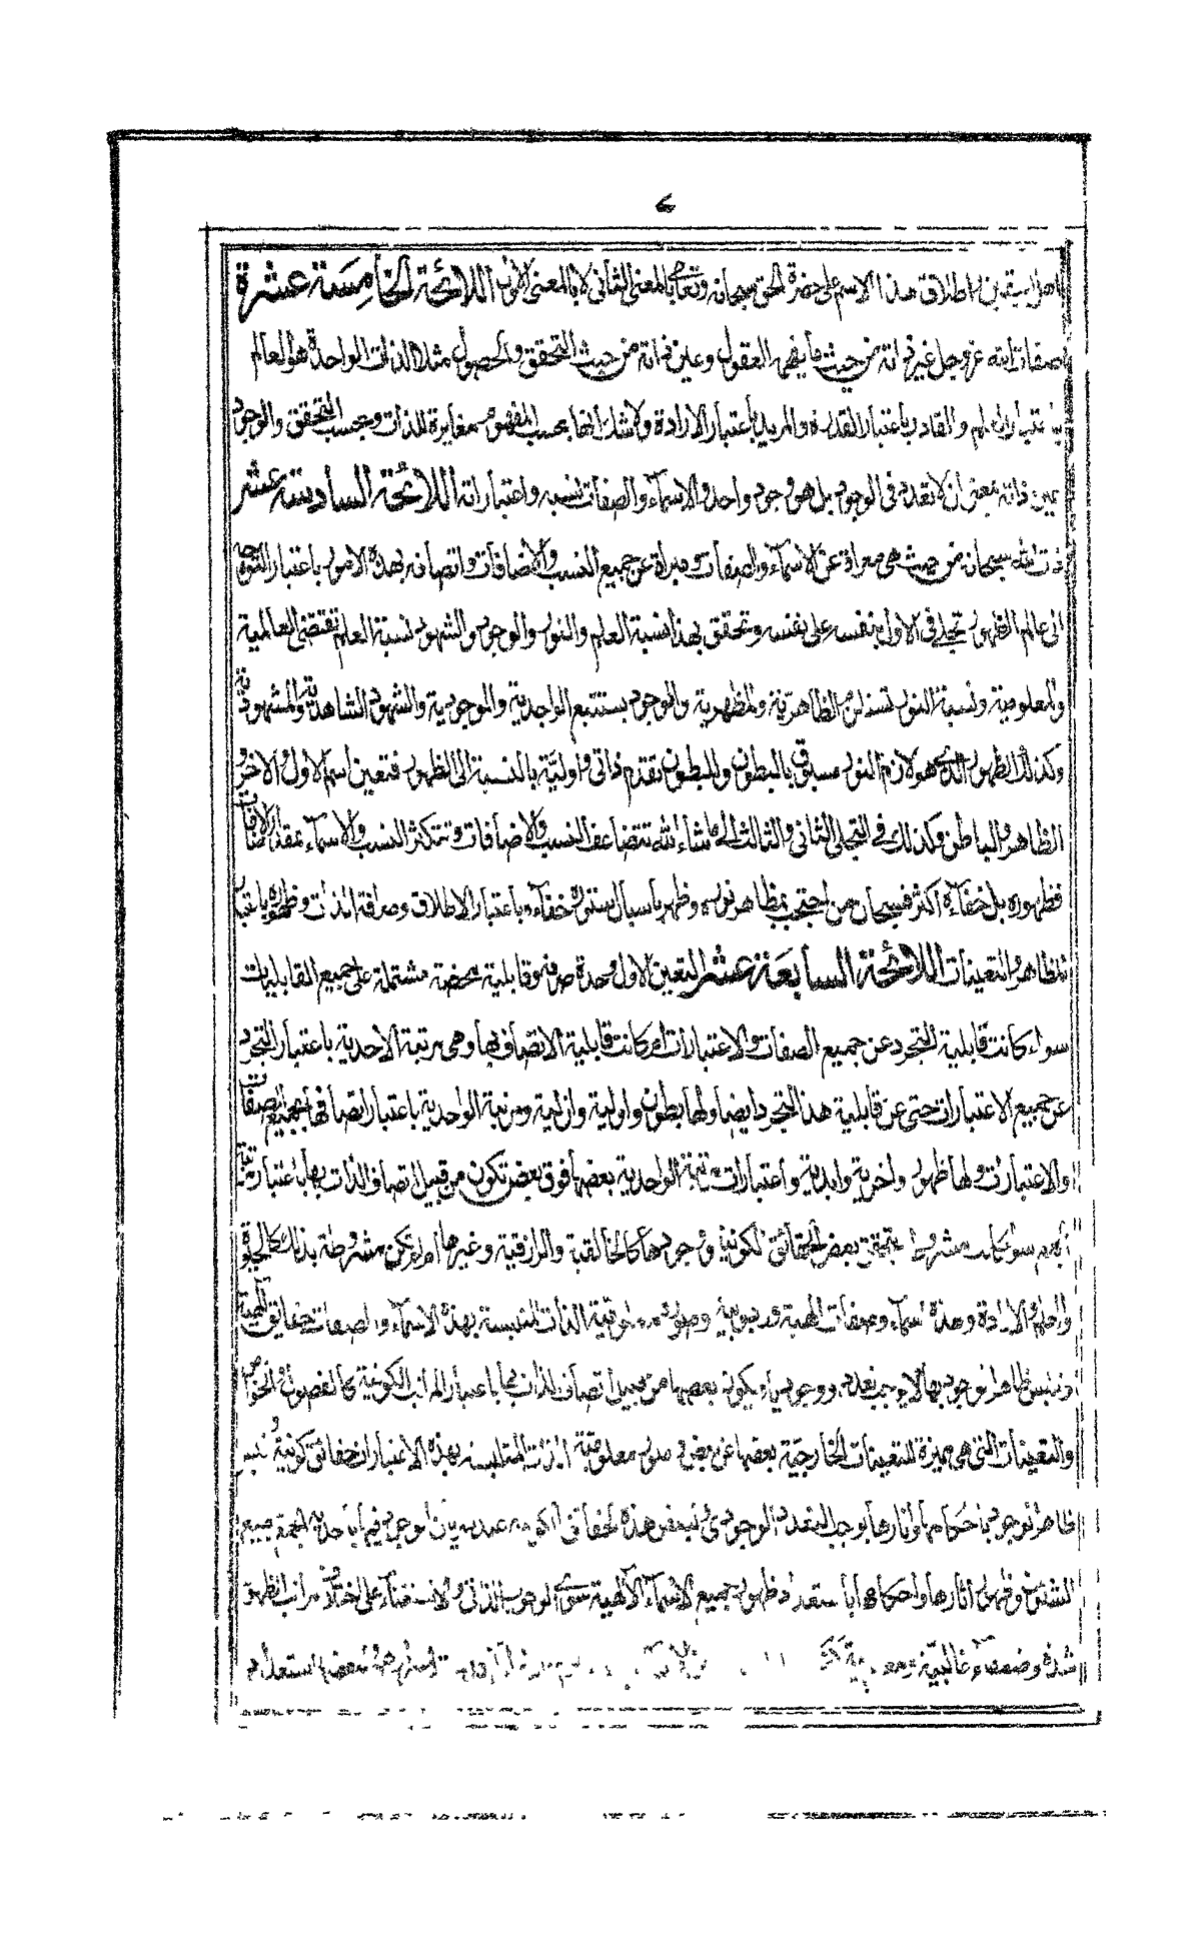 اهل اليقين اطلاق هذا الاسم على حضرة الحق سبحانه وتعالى بالمعنى الثانى لا بالمعنى الاول اللائحة الخامسة عشرة
صفات الله عز وجل غير ذاته من حيث ما يفهم العقول وعين ذاته من حيث التحقق والحصول مثلا الذات الواحدة هو العالم
باعتبار العلم والقادر باعتبار القدرة والمريد باعتبار الارادة ولا شك انها بحسب المفهوم مغايرة للذات وبحسب التحقق والوجود
عين ذاته بمعنى ان لا تعدد فى الوجود بل هو وجود واحد والاسماء والصفات نسبه واعتباراته اللائحة السادسة عشر
ذات الله سبحانه من حيث هى معراة عن الاسماء والصفات ومبراة عن جميع النسب والاضافات واتصافه بهذه الامور باعتبار التوجه
الى عالم الظهور تجلى فى الاول بنفسه على نفسه وتحقق بهذا نسبة العلم والنور والوجود والشهود نسبة العلم تقتضى العالمية
والمعلومية ونسبة النور تستلزم الظاهرية والمظهرية والوجود يستتبع الواجدية والموجودية والشهود الشاهدية والمشهودية
وكذلك الظهور الذى هو لازم النور مسبوق بالبطون وللبطون تقدم ذاتى واولية بالنسبة الى الظهور فتعين اسم الاول والاخر و
الظاهر والباطن وكذلك فى التجلى الثانى والثالث الى ما شاء الله تتضاعف النسب والاضافات وتتكثر النسب والاسماء بمقدار الاضافات
فظهوره بل خفاءه اكثر فسبحان من احتجب بمظاهر نوره وظهر باسبال ستوره خفاءه باعتبار الاطلاق وصرافة الذات وظهوره باعتبار
المظاهر والتعينات اللائحة السابعة عشر التعين الاول وحدة صرفة وقابلية محضة مشتملة على جميع القابليات
سواء كانت قابلية التجرد عن جميع الصفات والاعتبارات ام كانت قابلية الاتصاف بها وهى مرتبة الاحدية باعتبار التجرد
عن جميع الاعتبارات حتى عن قابلية هذا التجرد ايضا ولها بطون واولية وازلية ومرتبة الواحدية باعتبار اتصافها بجميع الصفات
والاعتبارات ولها ظهور واخرية وابدية واعتبارات مرتبة الواحدية بعضها فوق بعض تكون من قبيل اتصاف الذات بها باعتبار مرتبة
الجمع سواء كانت مشروطة بتحقق بعض الحقائق الكونية ووجودها كالخالقية والرازقية وغيرها ام لم تكن مشروطة بذلك كالحيوة
والعلم والارادة وهذه اسماء وصفات الهية وربوبية وصورة معلومية الذات المتلبسة بهذه الاسماء والصفات حقائق الهية
وتلبس ظاهر الوجود بها لا يوجب تعدد وجودى او يكون بعضها من قبيل اتصاف الذات بها باعتبار المراتب الكونية كالفصول والخواص
والتعينات التى هى مميزة للتعينات الخارجية بعضها عن بعض وصور معلومية الذات المتلبسة بهذه الاعتبارات حقائق كونية وتلبس
ظاهر الوجود باحكامها واثارها يوجب التعدد الوجودى ولبعض هذه الحقائق الكونية عند سريان الوجود فيها باحدية جمع جميع
الشئون وظهور اثارها واحكامها استعداد ظهور جميع الاسماء الالهية سوى الوجوب الذاتى والاستغناء على اختلاف مراتب الظهور
شدة وضعفا وغالبية ومغلوبية لبعض استعداد